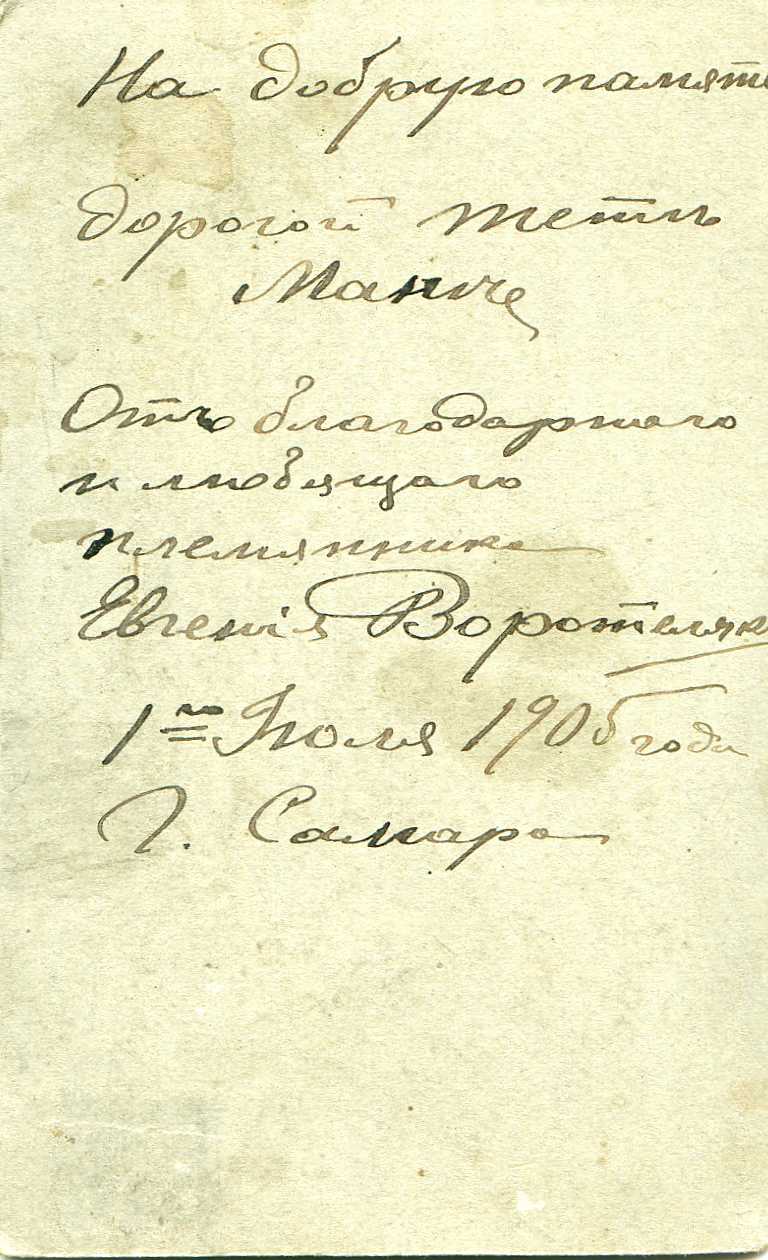 На добрую память
дорогой тетѣ
Маничѣ
Отъ благодарнаго
и любящаго
племянника
Евгенія
1го Іюля 1905 года
Г. Самара